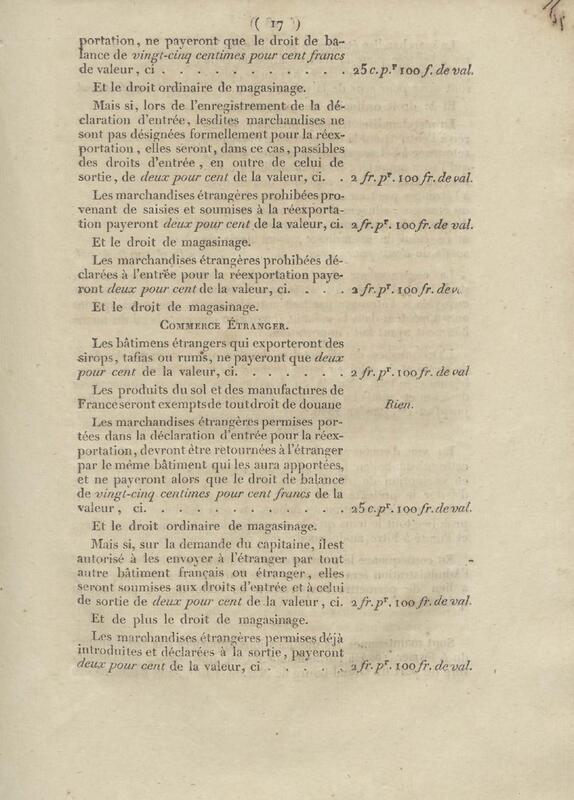 ( 17 )
portation, ne payeront que le droit de ba-
lance de vingt-cinq centimes pour cent francs
de valeur, ci . . . . . . . . . . . 25 c. p.r 100 f. de val.
Et le droit ordinaire de magasinage.
Mais si, lors de l'enregistrement de la dé-
claration d'entrée, lesdites marchandises ne
sont pas désignées formellement pour la réex-
portation, elles seront, dans ce cas, passibles
des droits d'entrée, en outre de celui de
sortie, de deux pour cent de la valeur, ci. . 2 fr. pr. 100 fr. de val.
Les marchandises étrangères prohibées pro-
venant de saisies et soumises à la réexporta-
tion payeront deux pour cent de la valeur, ci. 2 fr. pr. 100 fr. de val.
Et le droit de magasinage.
Les marchandises étrangères prohibées dé-
clarées à l'entrée pour la réexportation paye-
ront deux pour cent de la valeur, ci. . . . 2 fr. pr. 100 fr. de v.
Et le droit de magasinage.
COMMERCE ÉTRANGER.
Les bâtimens étrangers qui exporteront des
sirops, tafias ou rums, ne payeront que deux
pour cent de la valeur, ci. . . . . . . 2 fr. pr. 100 fr. de val
Les produits du sol et des manufactures de
France seront exempts de tout droit de douane Rien.
Les marchandises étrangères permises por-
tées dans la déclaration d'entrée pour la réex-
portation, devront être retournées à l'étranger
par le même bâtiment qui les aura apportées,
et ne payeront alors que le droit de balance
de vingt-cinq centimes pour cent francs de la
valeur, ci. . . . . . . . . . . . 25 c. pr. 100 fr. de val.
Et le droit ordinaire de magasinage.
Mais si, sur la demande du capitaine, il est
autorisé à les envoyer à l'étranger par tout
autre bâtiment français ou étranger, elles
seront soumises aux droits d'entrée et à celui
de sortie de deux pour cent de la valeur, ci. 2 fr. pr. 100 fr. de val.
Et de plus le droit de magasinage.
Les marchandises étrangères permises déjà
introduites et déclarées à la sortie, payeront
deux pour cent de la valeur, ci . . . . . 2 fr. pr. 100 fr. de val.